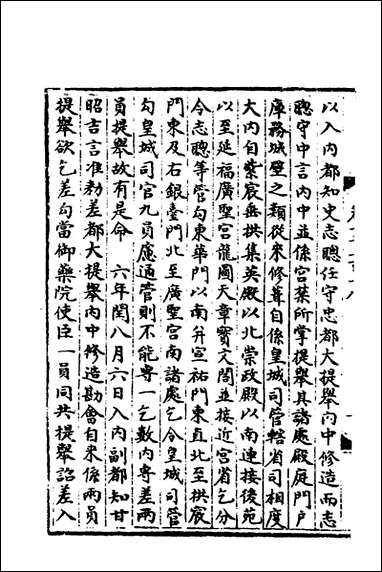 以入内都知史志聰任守忠都大提舉内中修造而志
聰守中言内中並係宫葉所掌提舉其諸處殿庭門户
庫務城壁之類從來修葺自係皇城司管轄省司相度
大内自紫宸垂拱集英殿以北崇政殿以南連接後苑
以至延福廣聖宫龍圖天章寳文閣並接近宫省乞分
今志聰等管勾東華門以南并宣祐門東直北至拱宸
門東及右銀臺門北至廣聖宫南諸處乞令皇城司管
勾皇城司官九員慮通管則不能専一乞數内専差兩
員提舉故有是命　六年閏八月六日入内副都知甘
昭吉言准勅差都大提舉内中修造勘會自來係兩員
提舉欲乞差勾當御藥院使臣一員同共提舉詔差入